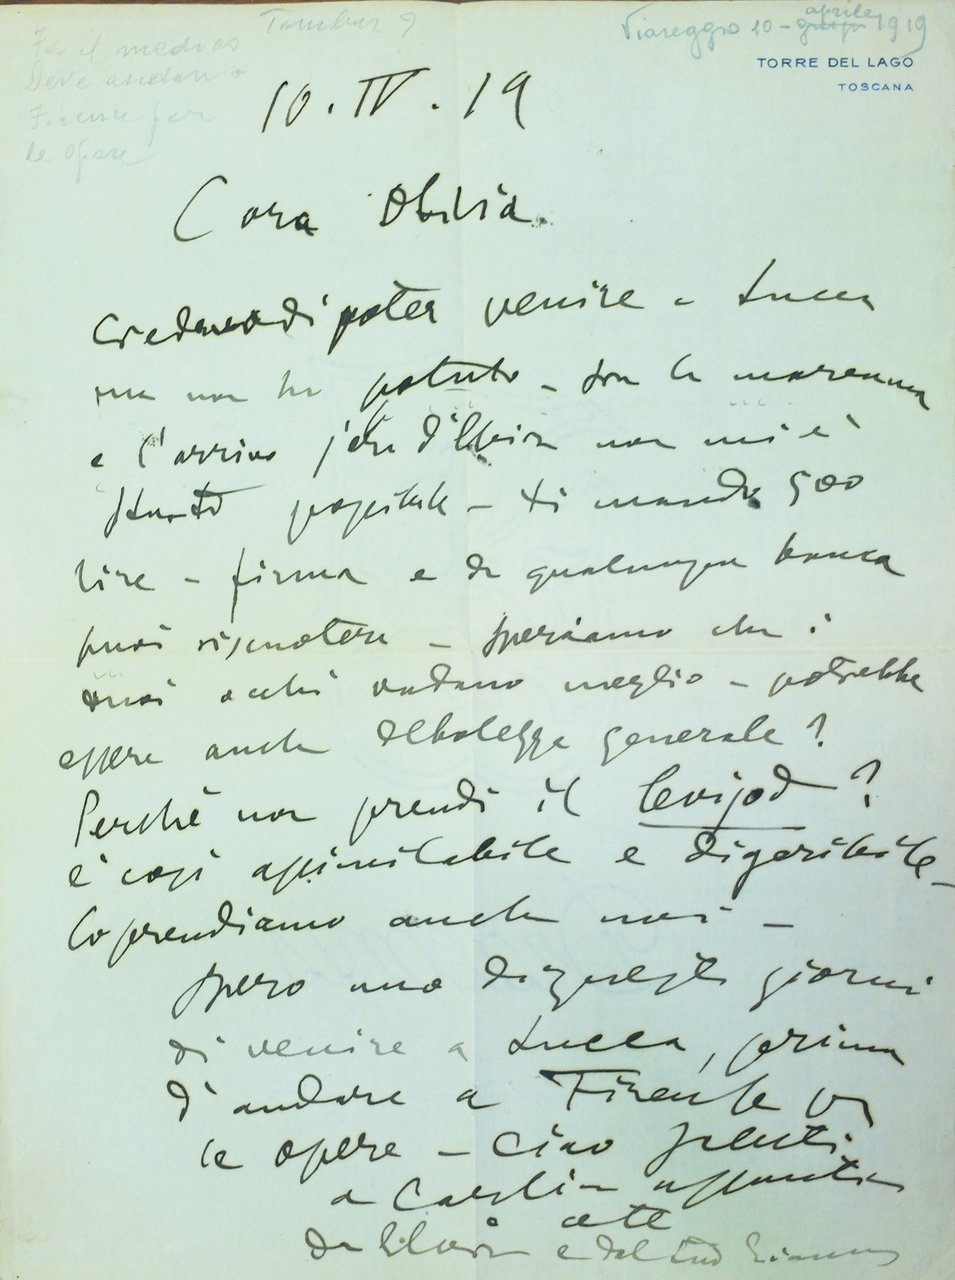 Tombur?
Viareggio 10 - giugno aprile 1919
Per il medico
Deve andare a
Firenze per
le opere
TORRE DEL LAGO
TOSCANA
10. IV. 19
Cara
credevo di poter venire a Lucca
ma non ho potuto - tra la maremma
e l'arrivo d'Elvira non mi è
stato possibile - ti mando 500
lire - firma e da qualunque banca
puoi riscuotere - speriamo che i
tuoi occhi vadano meglio - potrebbe
essere anche debolezza generale?
Perchè non prendi il
è così assimilabile e digeribile -
Lo prendiamo anche noi -
Spero uno di questi giorni
di venire a Lucca, prima
d'andare a Firenze per
le opere - ciao saluti
a
a te
da Elvira e dal tuo Giacomo